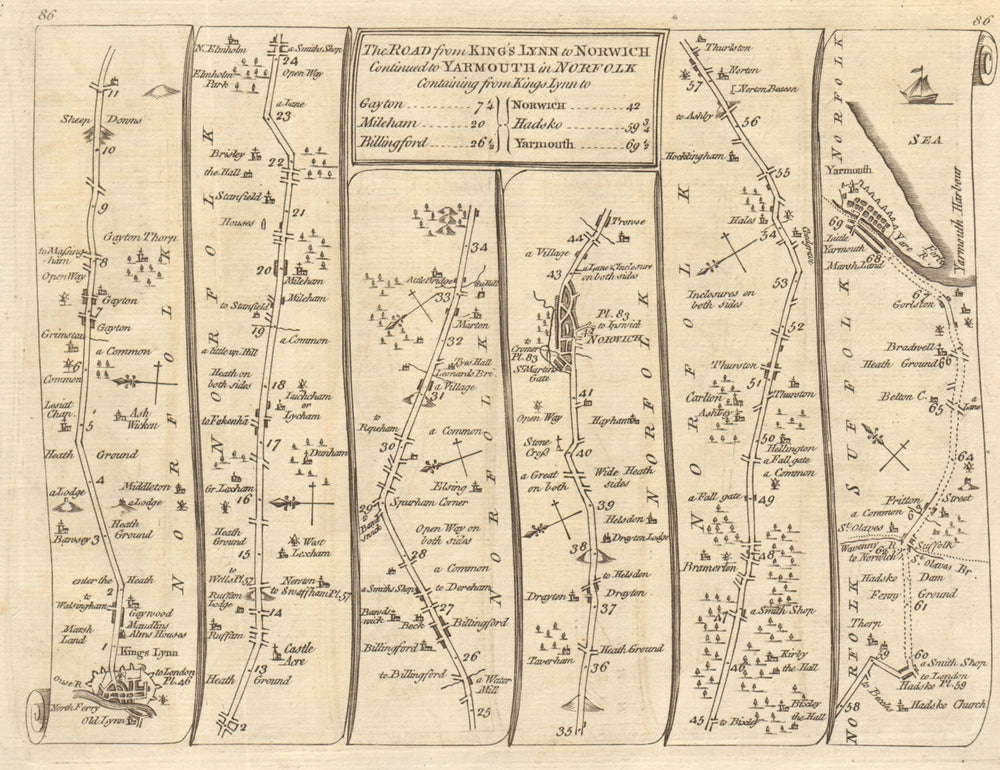 86
86
The ROAD from KING'S LYNN to NORWICH
Continued to YARMOUTH in NORFOLK
Containing from Kings Lynn to
Gayton 7¼
Mileham 20
Billingford 26½
NORWICH 42
Hadsko 59¾
Yarmouth 69½
11
Sheep Downs
10
9
Gayton Thorp
to Massing-
ham
8
Open Way
Gayton
7
Gayton
Grimston
a Common
6
Common
Lesiat
Chap.
Ash
Wicken
5
Heath Ground
4
a Lodge
Middleton
a Lodge
Heath
Ground
Bawsey
3
enter the Heath
2
to
Walsingham
Gaywood
Maudlins
Alms Houses
Marsh
Land
1
Kings Lynn
to London
Pl.46
Ouse R.
North Ferry
Old Lynn
NORFOLK
N. Elmholm
a Smiths Shop
24
Elmholm
Park
Open Way
a Lane
23
Brisley
22
the Hall
Stanfield
21
Houses
20
Mileham
Mileham
to Stanfield
19
a Common
a little up Hill
Heath on
both sides
18
Luchcham
or
Lycham
to Fakenha
17
Dunham
Gr. Lexham
16
Heath
Ground
West
Lexham
15
to
Wells Pl.57
Newton
to Swaffham Pl.57
Ruffam
Lodge
14
Ruffam
Castle
Acre
13
Heath Ground
12
NORFOLK
34
Attlebridge
the Hill
33
Marton
32
Tyes Hall
Leonards Bri.
a Village
31
to
Repeham
a Common
30
Elsing
Sparham Corner
29
Open Way on
both sides
28
a Common
a Smiths Shop
to Dereham
27
Beck
Billingford
Billingford
26
to Billingford
a Water
Mill
25
NORFOLK
Trowse
44
a Village
a Lane & Inclosure
on both sides
43
Pl. 83
to Ipswich
NORWICH
to
Cromer
Pl. 83
St. Martins
Gate
41
Open Way
Hayham
Stone
Cross
40
a Great Wide Heath
on both sides
39
Helsden
Drayton Lodge
38
to Helsden
Drayton
Drayton
37
Heath Ground
Taverham
36
35
NORFOLK
Thurlston
57
Norton
Norton Beacon
to Ashby
56
Hockingham
55
Hales
54
53
Inclosures on
both sides
52
Thurston
51
Thurston
Carlton
Ashby
50
Hellington
a Fall gate
a Common
a Fall gate
49
48
Bramerton
47
a Smith Shop
Kirby
the Hall
46
Bixley
the Hall
45
to Bixley
NORFOLK
NORFOLK
SEA
Yarmouth
69
Little
Yarmouth
68
Yare R.
Ferry
Yarmouth Harbour
Marsh Land
67
Gorlston
Bradwell
66
Heath Ground
Belton C.
65
a Lane
64
Fritton
Street
a Common
St. Olaves
Waveny R.
Suffolk
to Norwich
62
St. Olaves Br.
Hadsko Dam
Ferry Ground
61
Thorp
60
59
a Smith Shop
to London
Hadsko Pl.59
58
to Beccles
Hadsko Church
SUFFOLK
NORFOLK